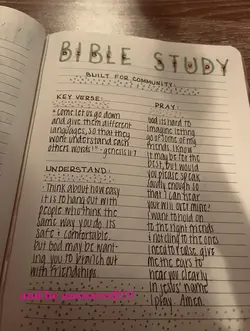 BIBLE STUDY
BUILT FOR COMMUNITY
KEY VERSE:
"Come let us go down
and give them different
languages, so that they
wont understand each
others words!" - genesis 11:7
UNDERSTAND:
• Think about how easy
it is to hang out with
people who think the
same way you do. Its
safe + comfortable.
but God may be want-
ing you to branch out
with friendships
PRAY:
God its hard to
imagine letting
go of some of my
friends. I know
it may be for the
best, but would
you please speak
loudly enough so
that I can hear
your will over mine?
I want to hold on
to the right friends
& not cling to the ones
I need to release. give
me the ears to
hear you clearly
in Jesus name
I pray. Amen.